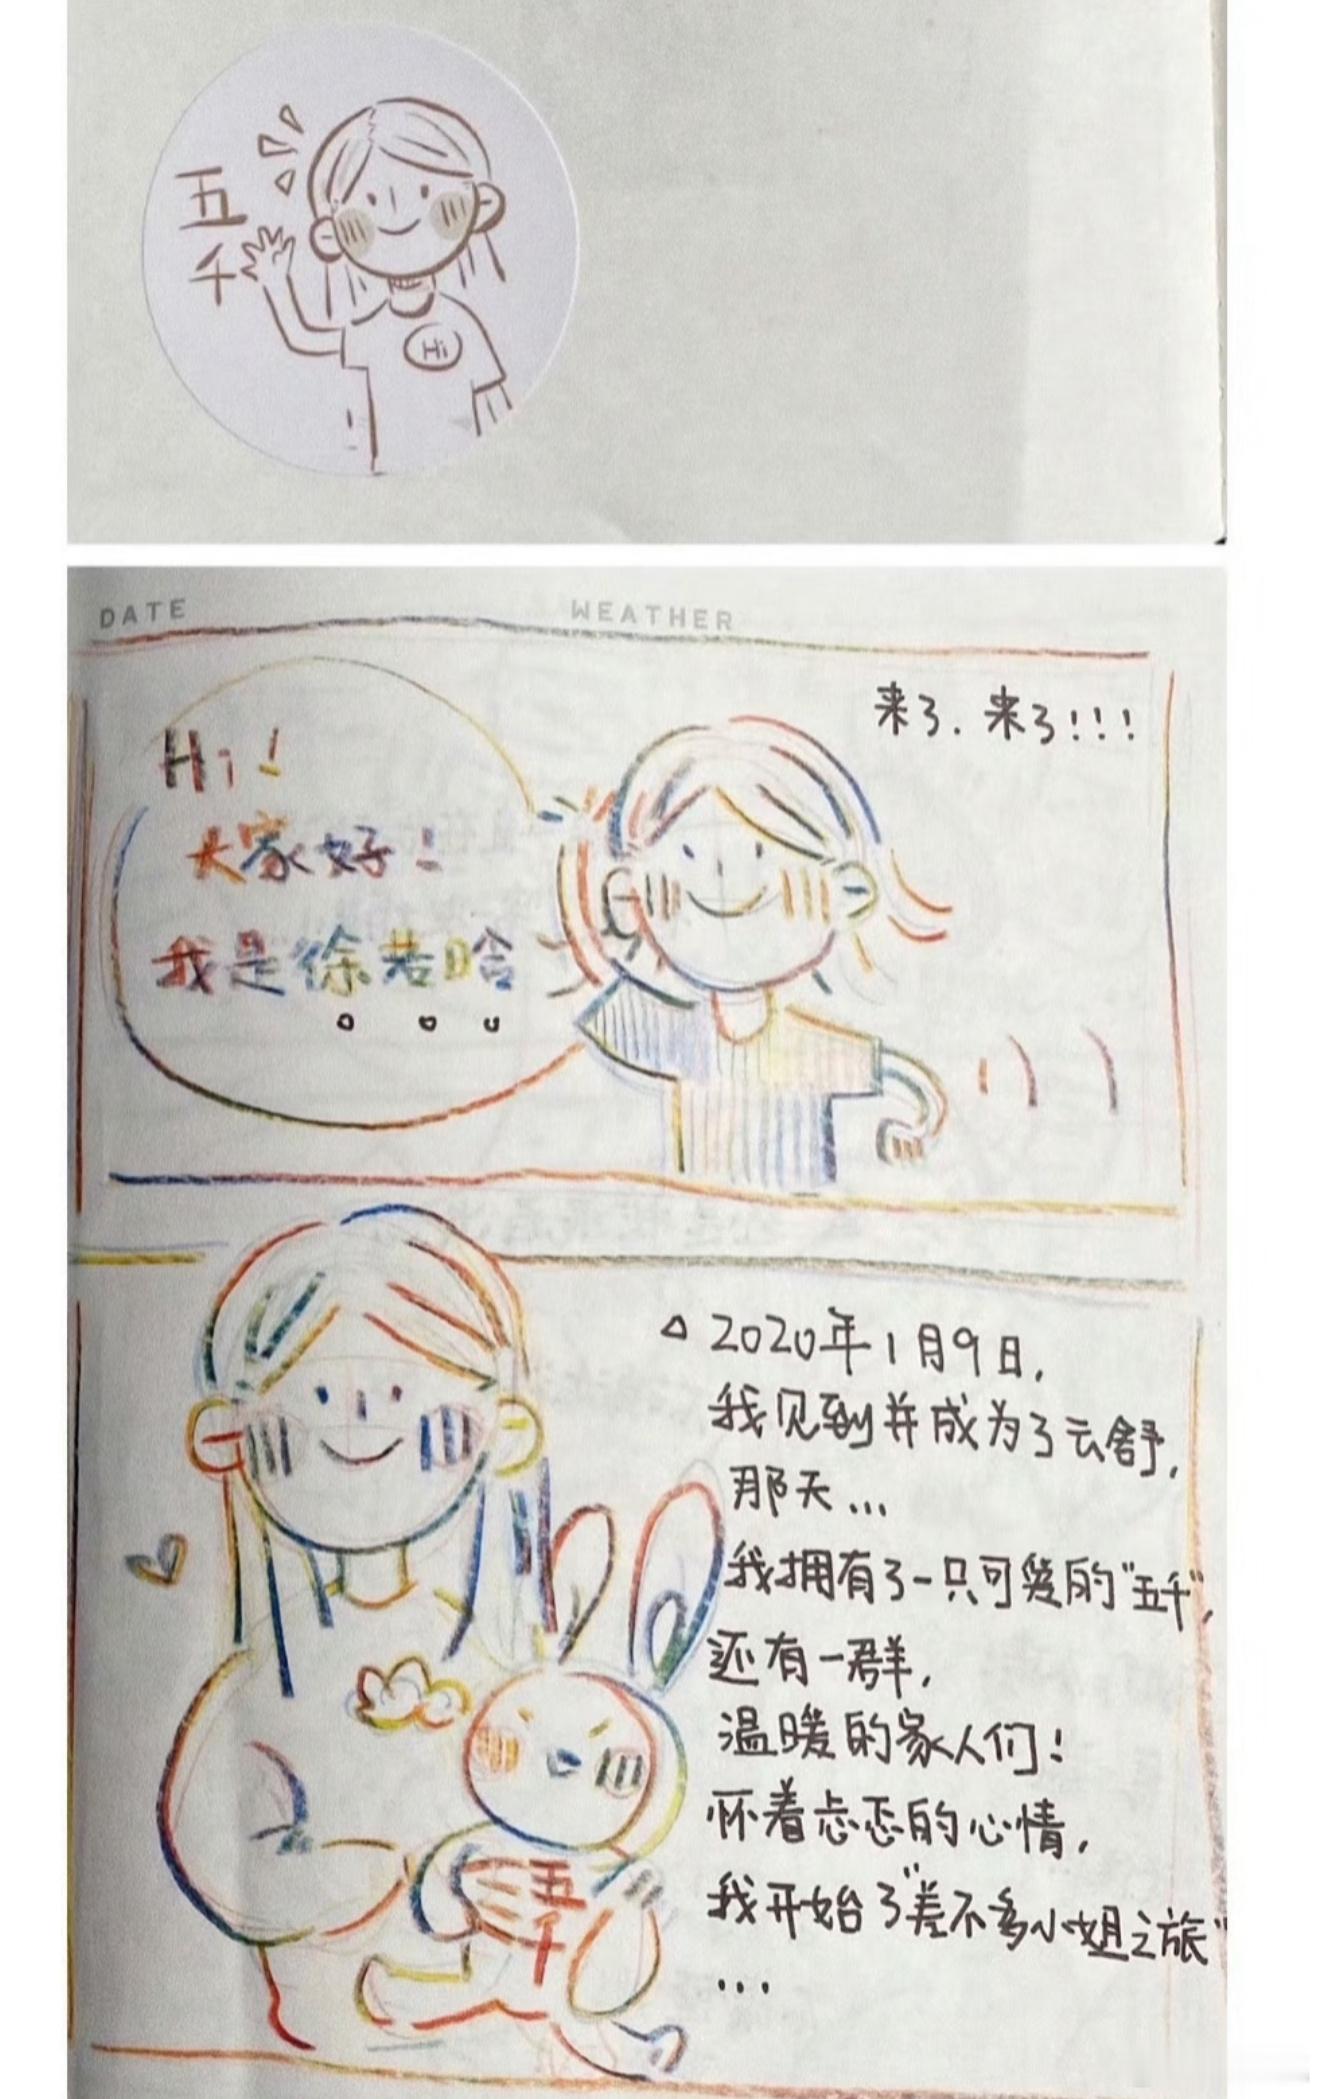 五
千
Hi
DATE WEATHER
来了.来了!!!
Hi!
大家好!
我是徐若晗
△2020年1月9日,
我见到并成为了云舒,
那天...
我拥有了一只可爱的"五千",
还有一群,
温暖的家人们!
怀着忐忑的心情,
我开始了"差不多小姐之旅"
...
五
千